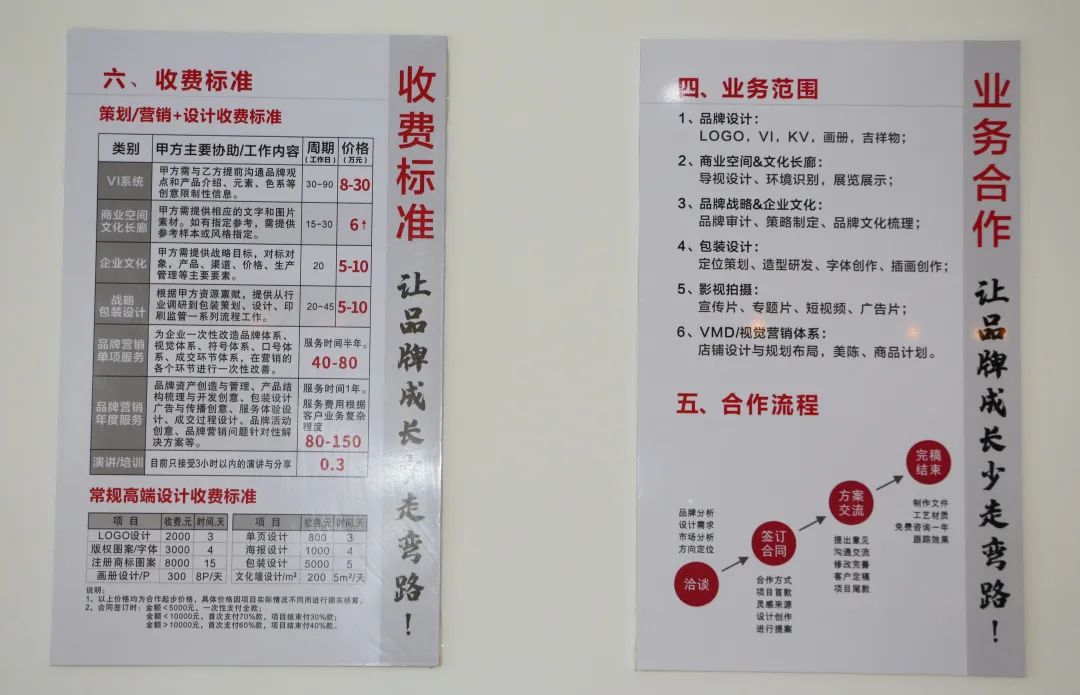 六、收费标准
策划/营销+设计收费标准
类别 甲方主要协助/工作内容 周期(工作日) 价格(万元)
VI系统 甲方需与乙方提前沟通品牌观
点和产品介绍、元素、色系等
创意限制性信息。 30-90 8-30
商业空间
文化长廊 甲方需提供相应的文字和图片
素材。如有指定参考，需提供
参考样本或风格指定。 15-30 6↑
企业文化 甲方需提供战略目标，对标对
象，产品、渠道、价格、生产
管理等主要要素。 20 5-10
战略
包装设计 根据甲方资源禀赋，提供从行
业调研到包装策划、设计、印
刷监管一系列流程工作。 20-45 5-10
品牌营销
单项服务 为企业一次性改造品牌体系、
视觉体系、符号体系、口号体
系、成交环节体系，在营销的
各个环节进行一次性改善。 服务时间半年。
40-80
品牌营销
年度服务 品牌资产创造与管理、产品结
构梳理与开发创意、包装设计
广告与传播创意、服务体验设
计、成交过程设计、品牌活动
创意、品牌营销问题针对性解
决方案等。 服务时间1年。
服务费用根据
客户业务复杂
程度
80-150
演讲/培训 目前只接受3小时以内的演讲与分享 0.3
常规高端设计收费标准
项 目 收费.元 时间.天 项 目 收费.元 时间.天
LOGO设计 2000 3 单页设计 800 3
版权图案/字体 3000 4 海报设计 1000 4
注册商标图案 8000 15 包装设计 5000 5
画册设计/P 300 8P/天 文化墙设计/m² 200 5m²/天
说明：
1、以上价格均为合作起步价格，具体价格因项目实际情况不同而进行据实核算。
2、合同签订时：金额＜5000元，一次性支付全款；
金额＜10000元，首次支付70%款，项目结束付30%款；
金额＞10000元，首次支付60%款，项目结束付40%款。
收费标准
让品牌成长少走弯路！
四、业务范围
1、品牌设计：
LOGO，VI，KV，画册，吉祥物；
2、商业空间&文化长廊：
导视设计、环境识别，展览展示；
3、品牌战略&企业文化：
品牌审计、策略制定、品牌文化梳理；
4、包装设计：
定位策划、造型研发、字体创作、插画创作；
5、影视拍摄：
宣传片、专题片、短视频、广告片；
6、VMD/视觉营销体系：
店铺设计与规划布局，美陈、商品计划。
五、合作流程
洽谈
品牌分析
设计需求
市场分析
方向定位
签订
合同
合作方式
项目首款
灵感来源
设计创作
进行提案
方案
交流
提出意见
沟通交流
修改完善
客户定稿
项目尾款
完稿
结束
制作文件
工艺材质
免费咨询一年
跟踪效果
业务合作
让品牌成长少走弯路！